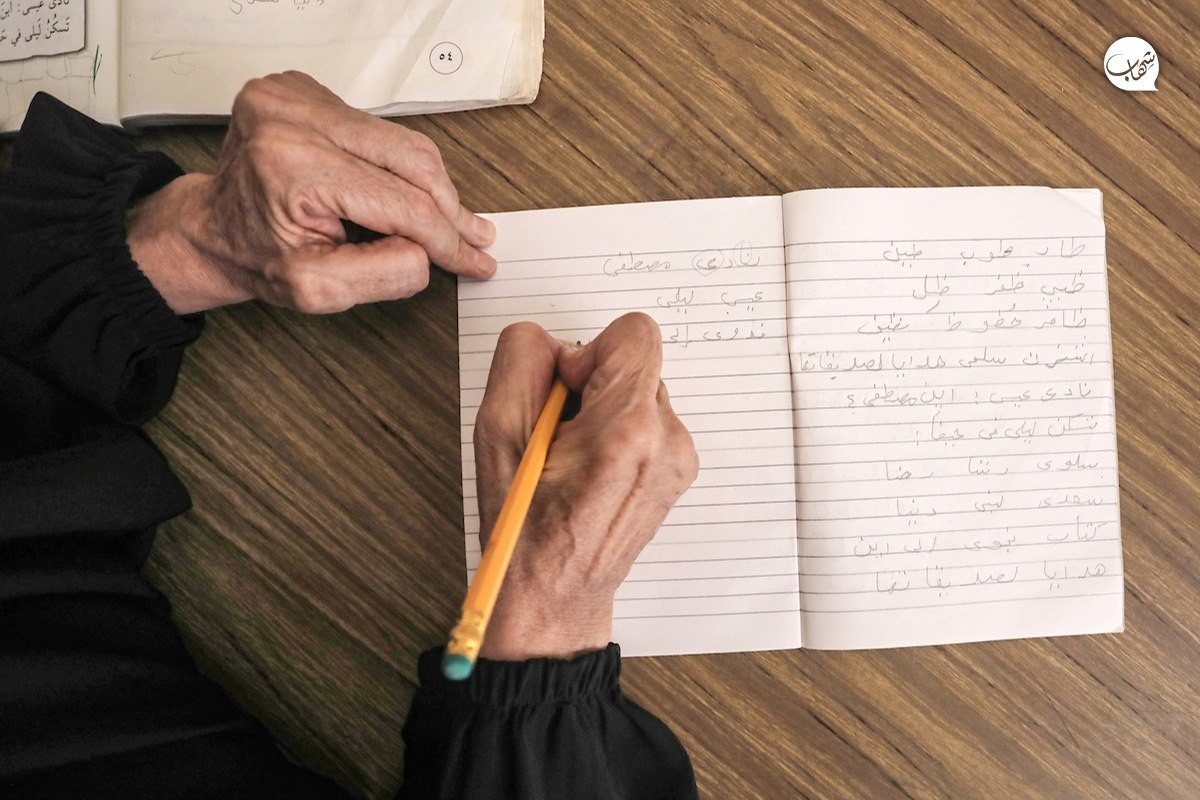 نادى عيسى: أين
تسكُنُ ليلى في
٥٤
شهاب
طار حلوب طبيل
ظبي ظفر ظل
ظافر حُظوظ نظيف
اشترت سلمى هدايا لصديقاتها
نادى عيسى: اين مصطفى؟
تسكن ليلى في حيفا:
سلوى رشا رضا
سعدى لبنى دنيا
كتاب نجوى الى اين
هدايا لصديقاتها
نادى مصطفى
عيسى ليلى
فدوى إلى